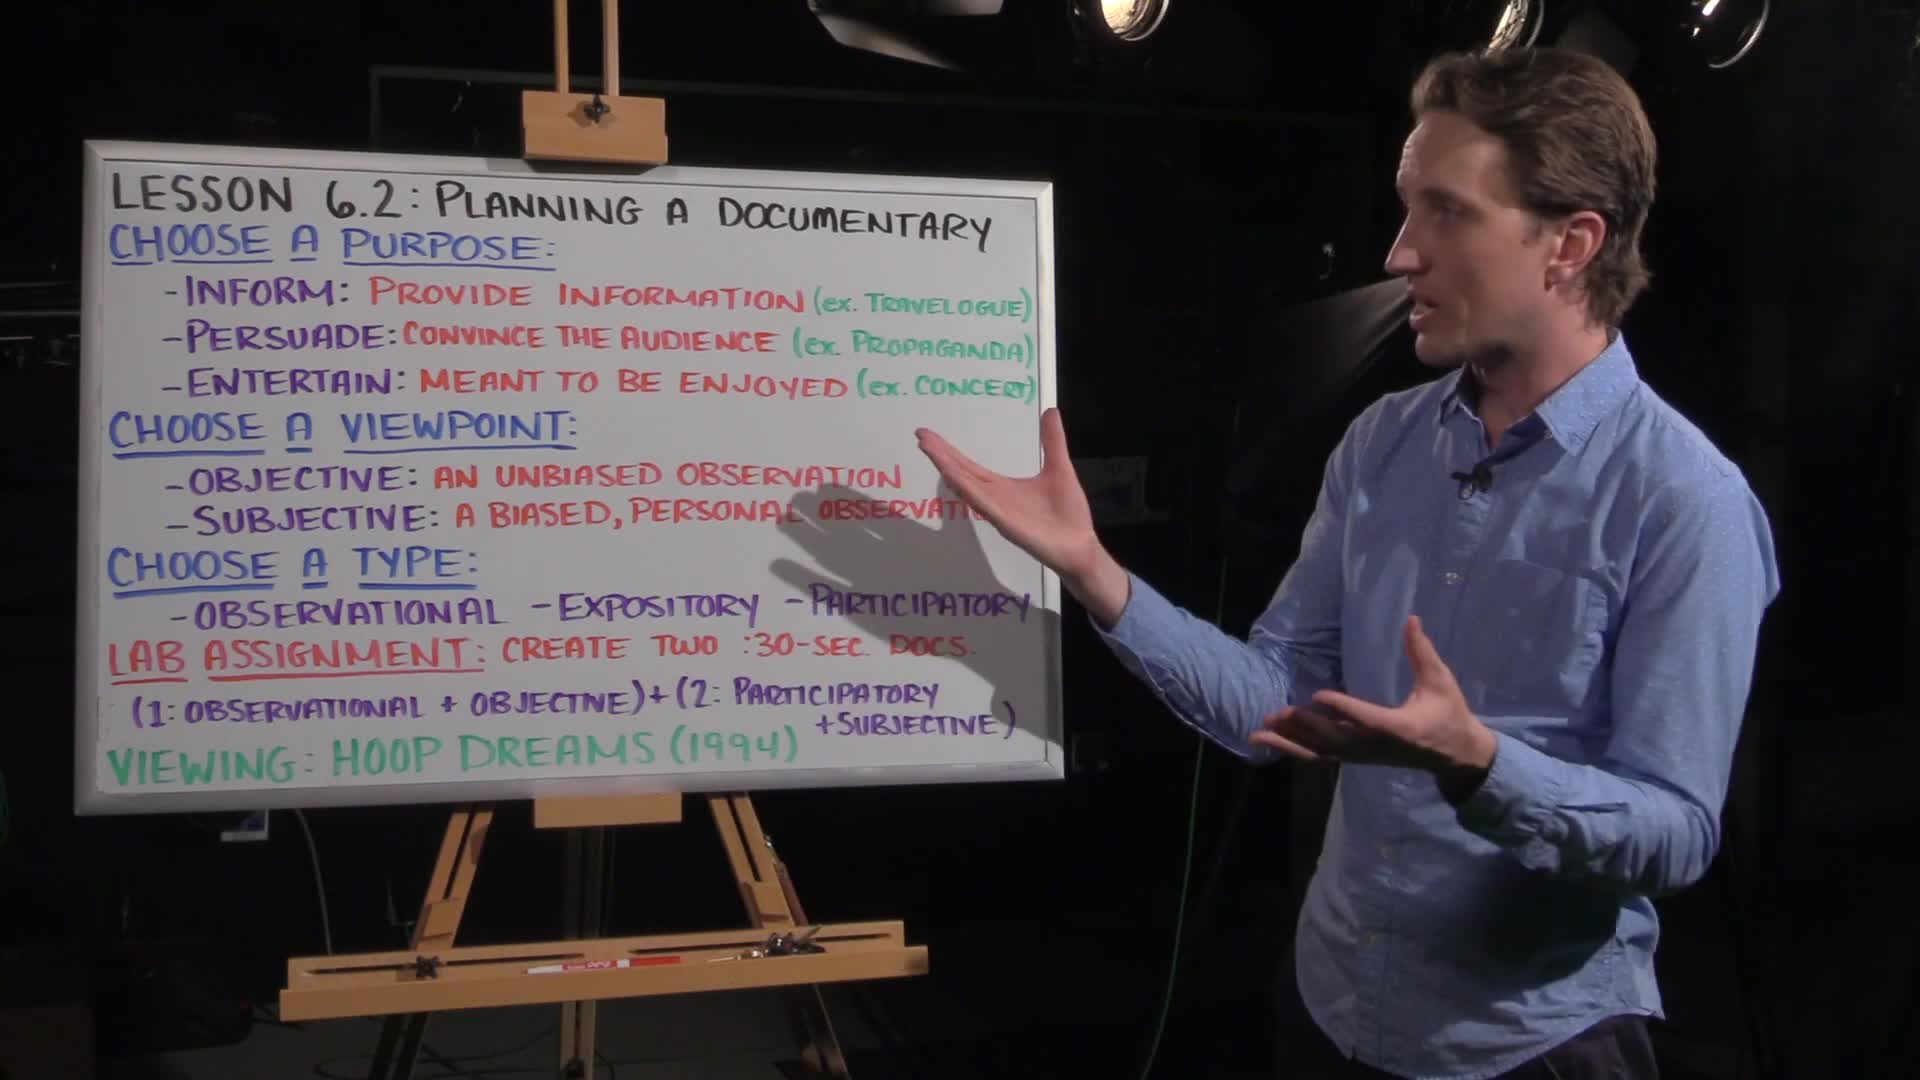 LESSON 6.2: PLANNING A DOCUMENTARY
CHOOSE A PURPOSE:
-INFORM: PROVIDE INFORMATION (ex. TRAVELOGUE)
-PERSUADE: CONVINCE THE AUDIENCE (ex. PROPAGANDA)
-ENTERTAIN: MEANT TO BE ENJOYED (ex. CONCERT)
CHOOSE A VIEWPOINT:
-OBJECTIVE: AN UNBIASED OBSERVATION
-SUBJECTIVE: A BIASED, PERSONAL OBSERVATIO
CHOOSE A TYPE:
-OBSERVATIONAL -EXPOSITORY -PARTICIPATORY
LAB ASSIGNMENT: CREATE TWO :30-SEC. DOCS.
(1: OBSERVATIONAL + OBJECTIVE) + (2: PARTICIPATORY
+SUBJECTIVE)
VIEWING: HOOP DREAMS (1994)